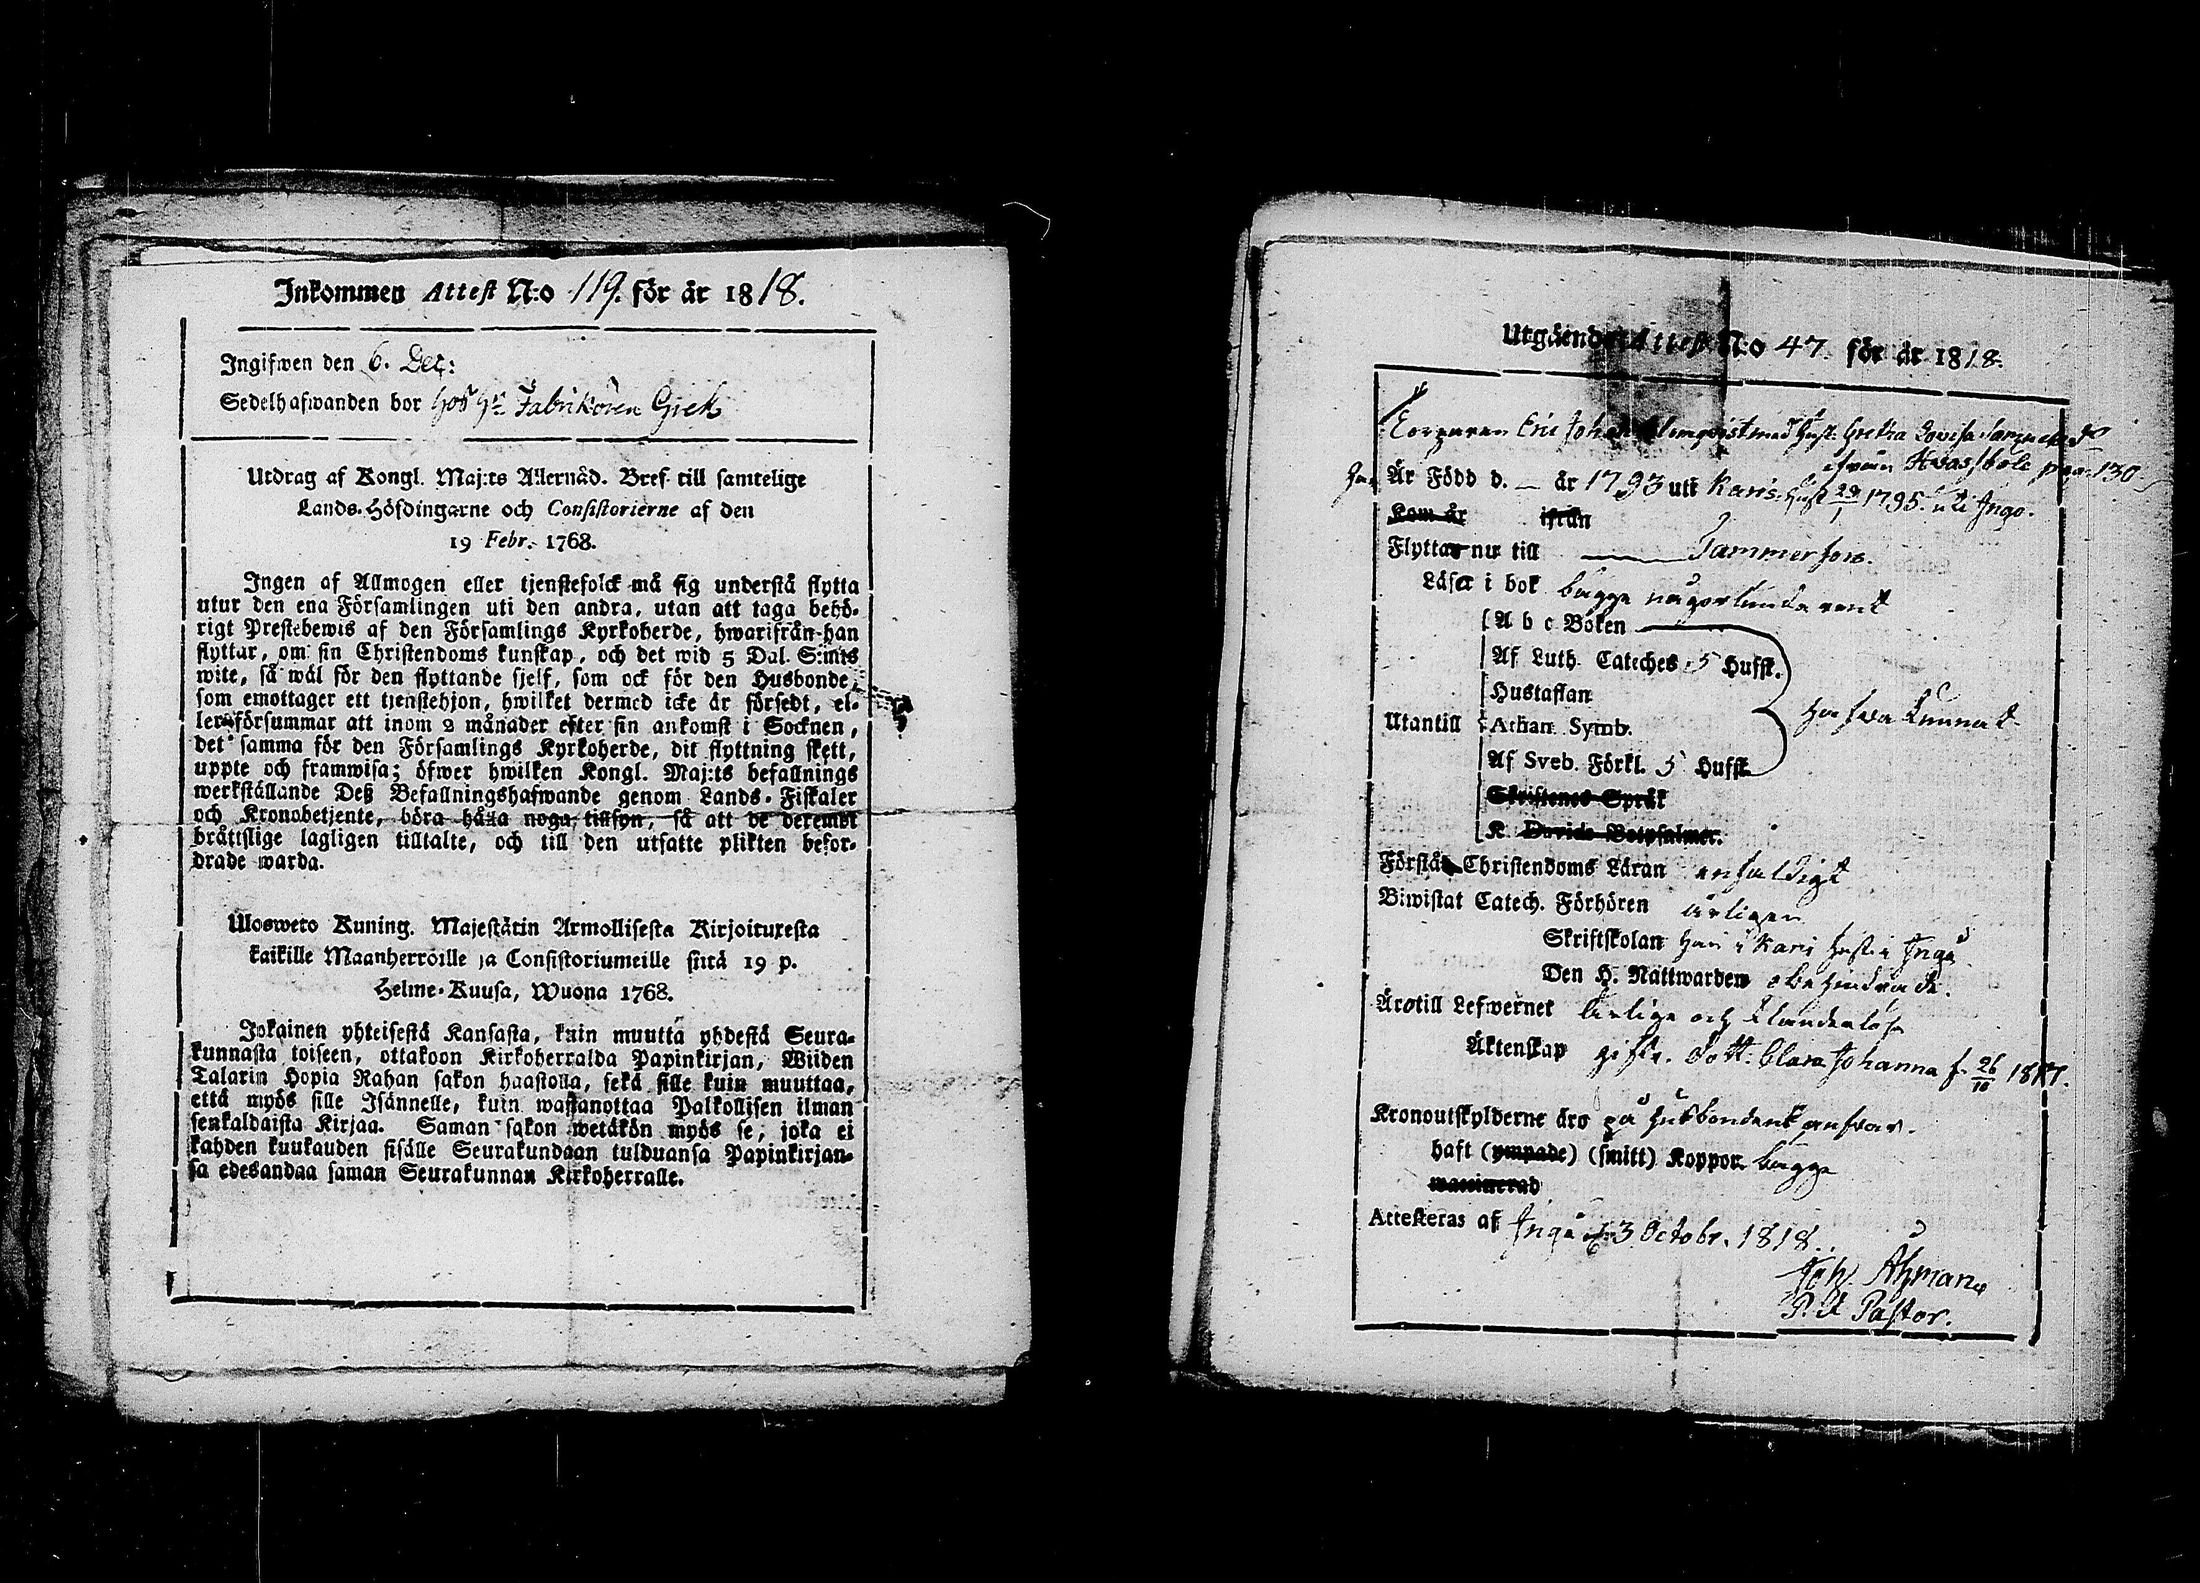 Inkommen Attest N:o 119. för år 1818.
Ingifwen den 6. Dec:
Sedelhafwanden bor hos Hr Fabrikören Gick
Utdrag af Kongl. Maj:ts Allernåd. Bref till samtelige
Lands-Höfdingarne och Consistorierne af den
19 Febr. 1768.
Ingen af Allmogen eller tjenstefolck må sig understå flytta
utur den ena Församlingen uti den andra, utan att taga behö-
rigt Prestebewis af den Församlings Kyrkoherde, hwarifrån han
flyttar, om sin Christendoms kunskap, och det wid 5 Dal. S:mts
wite, så wäl för den flyttande sjelf, som ock för den Husbonde,
som emottager ett tjenstehjon, hwilket dermed icke är försedt, el-
ler försummar att inom 2 månader efter sin ankomst i Socknen,
det samma för den Församlings Kyrkoherde, dit flyttning skett,
uppte och framwisa; öfwer hwilken Kongl. Maj:ts befallnings
werkställande Deß Befallningshafwande genom Lands-Fiskaler
och Kronobetjente, böra hålla noga tillsyn, så att de deremot
bråttslige lagligen tilltalte, och till den utsatte plikten befor-
drade warda.
Uloswero Kuning. Majestätin Armollisesta Kirjoituxesta
kaikille Maanherroille ja Consistoriumeille siitä 19 p.
Helme-Kuusa, Wuona 1768.
Jokainen yhteisestä Kansasta, kuin muutta yhdestä Seura-
kunnasta toiseen, ottakoon Kirkoherralda Papinkirjan, Wiiden
Talarin Hopia Rahan sakon haastolla, sekä sille kuin muuttaa,
että myös sille Isännelle, kuin wastanottaa Palkollisen ilman
senkaldaista Kirjaa. Saman sakon wetäkön myös se, joka ei
kahden kuukauden sisälle Seurakundaan tulduansa Papinkirjan-
sa edesandaa saman Seurakunnan Kirkoherralle.
Utgående Attest N:o 47 för år 1818.
Eric Johan Almqvist med Hust. Gretha Lovisa
ifrån pag. 130
Är Född d. — år 1793 uti Karis. Hust 29/1 1795 uti Ingo.
Kom år ifrån
Flyttar nu till — Tammerfors.
Läser i bok bägge någorlunda rent
A b c Boken
Af Luth. Cateches 5 Hufst.
Hustaflan
Utantill Athan. Symb. hafva lunnat
Af Sveb. Förkl. 5 Hufst
Skriftenes Språk
K. Davids Botpsalmer.
Förstår Christendoms Läran enfaldigt
Biwistat Catech. Förhören årligen
Skriftskolan Han i Karis Hust. i Ingå
Den H. Nattwarden obehindrade.
Äro till Lefwernet ärlige och klanderlöse
Äktenskap gifte. Dott: Clara Johanna f. 26/10 1817.
Kronoutskylderne äro på Husbondens ansvar.
haft (ympade) (smitt) Koppor bägge
waccinerad
Attesteras af Ingå d. 3 Octobr. 1818.
Joh. Åhman
P. t. Pastor.